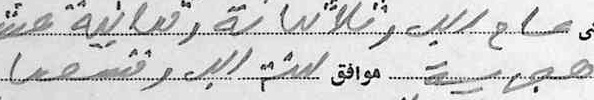 في عام الف وثلاثمائة وثمانية عشر
هجرية موافق لسنة الف وتسعما